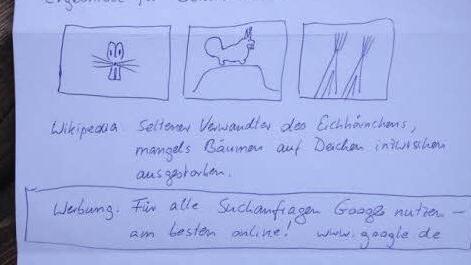 Ergebnisse für
Wikipedia. Seltener Verwandter des Eichhörnchens,
mangels Bäumen auf Deichen inzwischen
ausgestorben.
Werbung. Für alle Suchanfragen Google nutzen –
am besten online! www.google.de